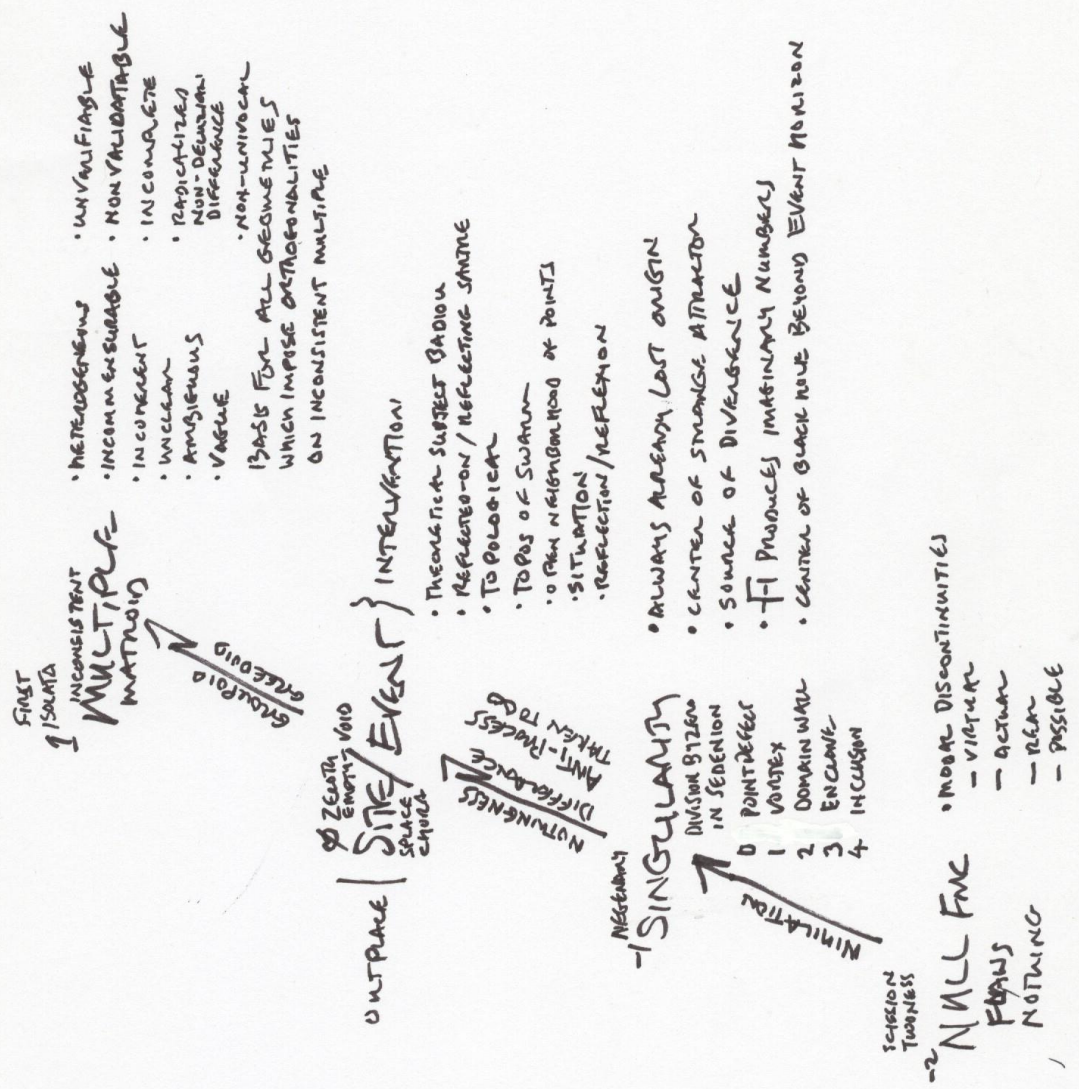 FIRST
1 ISOLATA
INCONSISTENT
MULTIPLE
MATROID
• HETEROGENEOUS
• INCOMMENSURABLE
• INCOHERENT
• UNCLEAR
• AMBIGUOUS
• VAGUE
• UNVERIFIABLE
• NONVALIDATABLE
• INCOMPLETE
• RADICALIZED
NON-DELUZIAN
DIFFERENCE
• NON-UNIVOCAL
BASIS FOR ALL GEOMETRIES
WHICH IMPOSE ORTHOGONALITIES
ON INCONSISTENT MULTIPLE
GROUPOID
GREEDOID
Ø ZEROTH
EMPTY VOID
OUTPLACE | SITE/EVENT } INTERVENTION
SPLACE
CHORA
• THEORETICAL SUBJECT BADIOU
• REFLECTED-ON/REFLECTING SARTRE
• TOPOLOGICAL
• TOPOS OF SWARM
• OPEN NEIGHBORHOOD OF POINTS
• SITUATION
• REFLECTION/REFLEXION
NOTHINGNESS
DIFFERANCE
ANTI-PROCESS
TAKEN TO
NEGENARY
-1 SINGULARITY
DIVISION BY ZERO
IN SEDENION
0 POINT DEFECT
1 VORTEX
2 DOMAIN WALL
3 ENCLAVE
4 INCLUSION
• ALWAYS ALREADY LOST ORIGIN
• CENTER OF STRANGE ATTRACTOR
• SOURCE OF DIVERGENCE
• √-1 PRODUCES IMAGINARY NUMBERS
• CENTER OF BLACK HOLE BEYOND EVENT HORIZON
NIHILATION
TWONESS
-2 NULL
FLAWS
NOTHING
• MODAL DISCONTINUITIES
- VIRTUAL
- ACTUAL
- REAL
- POSSIBLE